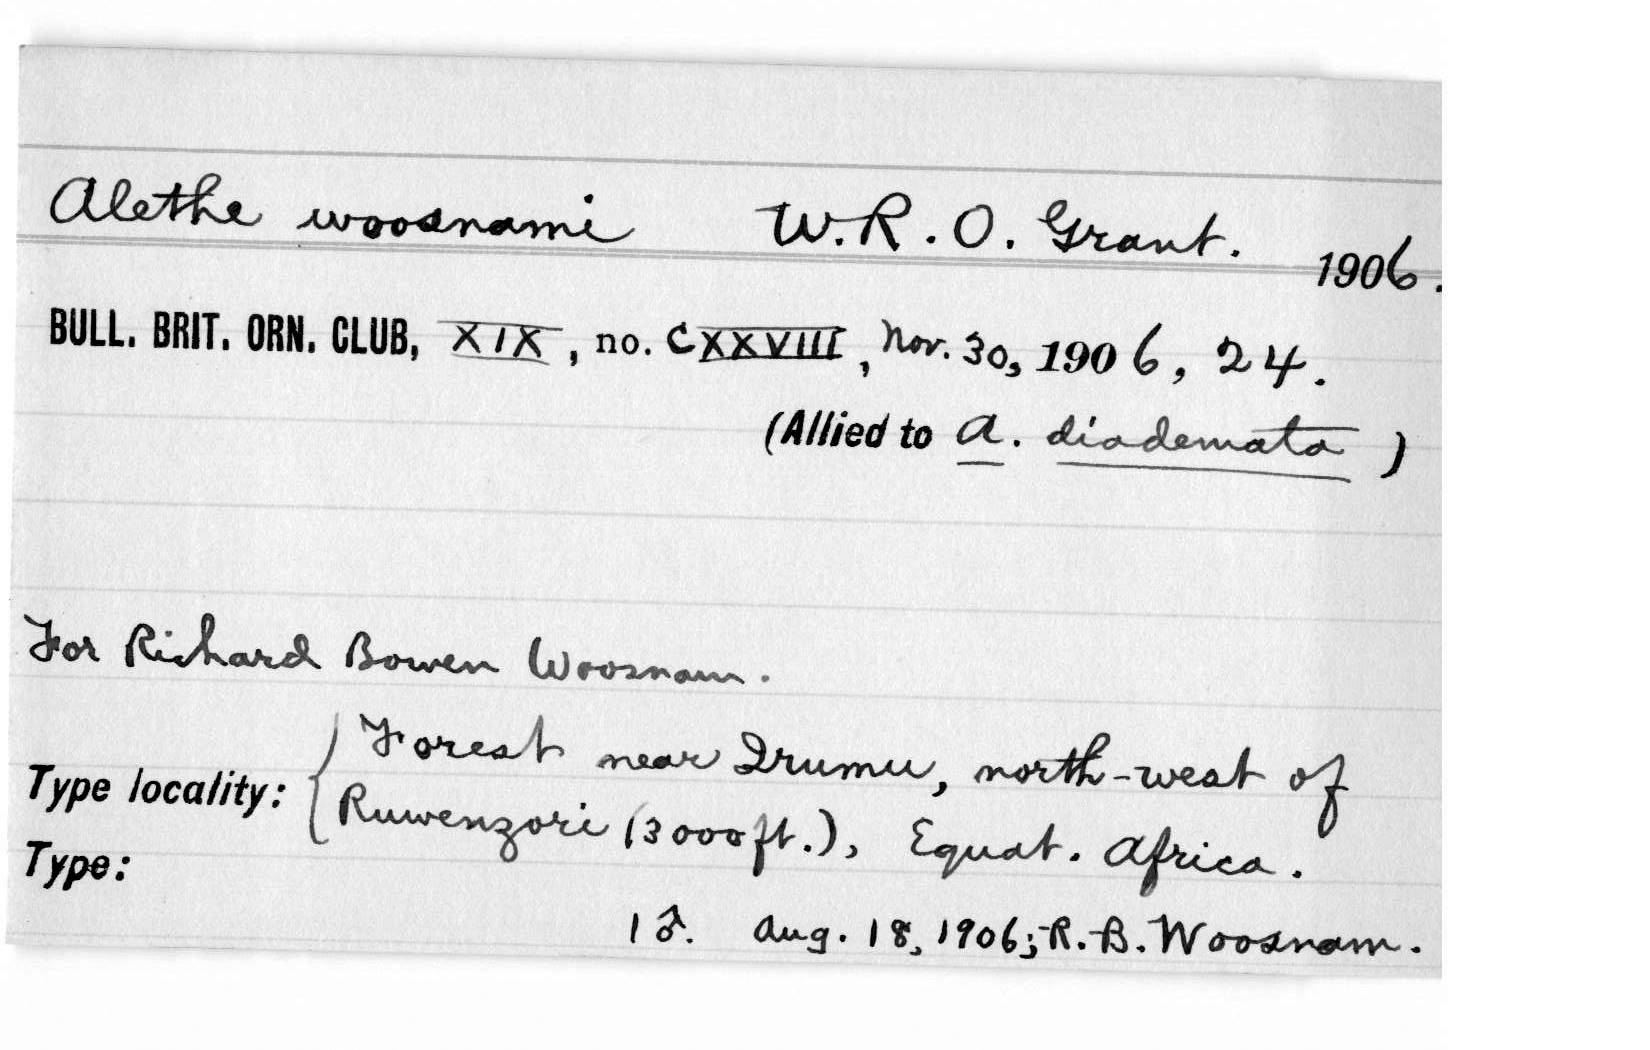 Alethe woosnami W. R. O. Grant. 1906.
BULL. BRIT. ORN. CLUB, XIX, no. CXXVIII, Nov. 30, 1906, 24.
(Allied to A. diademata)
For Richard Bowen Woosnam.
Type locality: { Forest near Irumu, north-west of
Ruwenzori (3000 ft.), Equat. Africa.
Type:
1 ♂. Aug. 18, 1906; R. B. Woosnam.